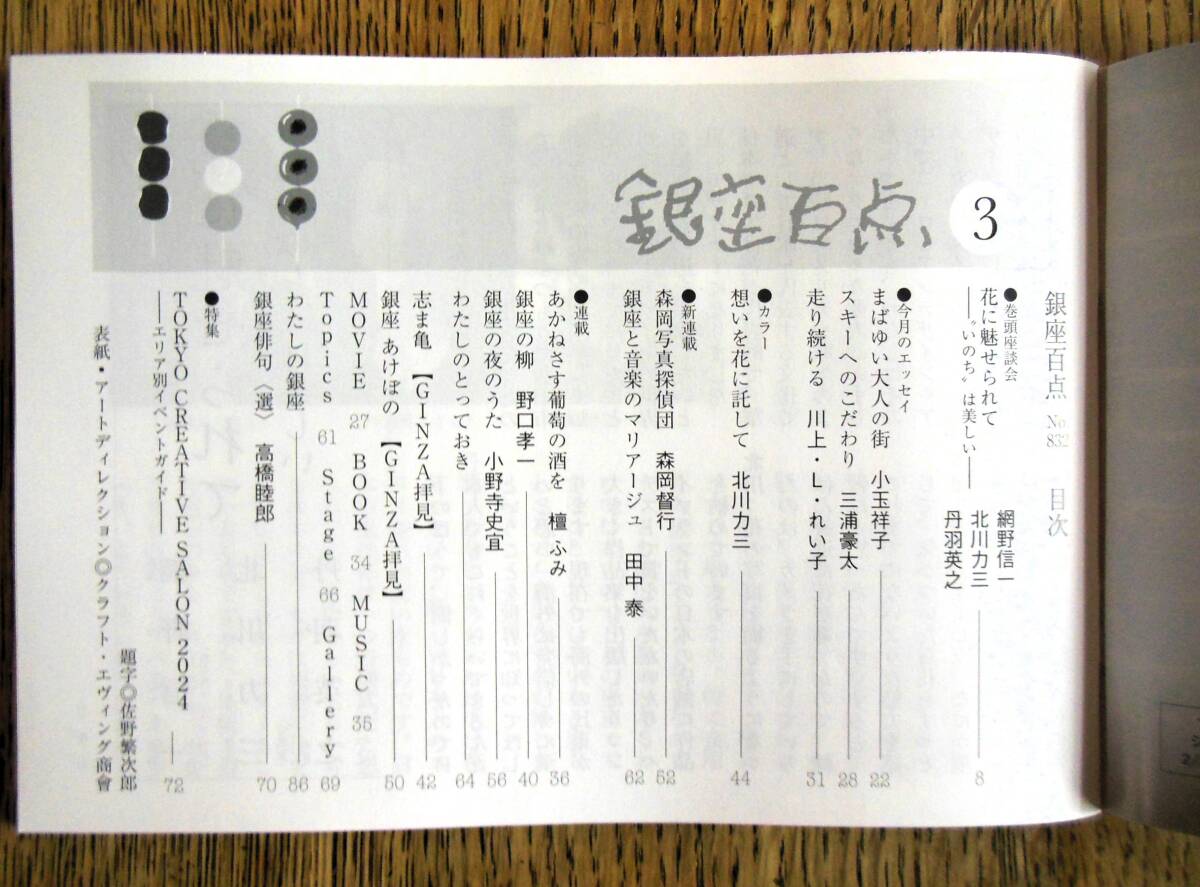 銀座百点
3
銀座百点 No.832 目次
●巻頭座談会
花に魅せられて
――〝いのち〟は美しい――
網野信一
北川力三
丹羽英之
8
●今月のエッセイ
まばゆい大人の街 小玉祥子 22
スキーへのこだわり 三浦豪太 28
走り続ける 川上・L・れい子 31
●カラー
想いを花に託して 北川力三 44
●新連載
森岡写真探偵団 森岡督行 52
銀座と音楽のマリアージュ 田中 泰 62
●連載
あかねさす葡萄の酒を 檀 ふみ 36
銀座の柳 野口孝一 40
銀座の夜のうた 小野寺史宜 56
わたしのとっておき 64
志ま亀 【GINZA拝見】 42
銀座 あけぼの 【GINZA拝見】 50
MOVIE 27 BOOK 34 MUSIC 35
Topics 61 Stage 66 Gallery 69
わたしの銀座 86
銀座俳句〈選〉 高橋睦郎 70
●特集
TOKYO CREATIVE SALON 2024 72
――エリア別イベントガイド――
題字◎佐野繁次郎
表紙・アートディレクション◎クラフト・エヴィング商會